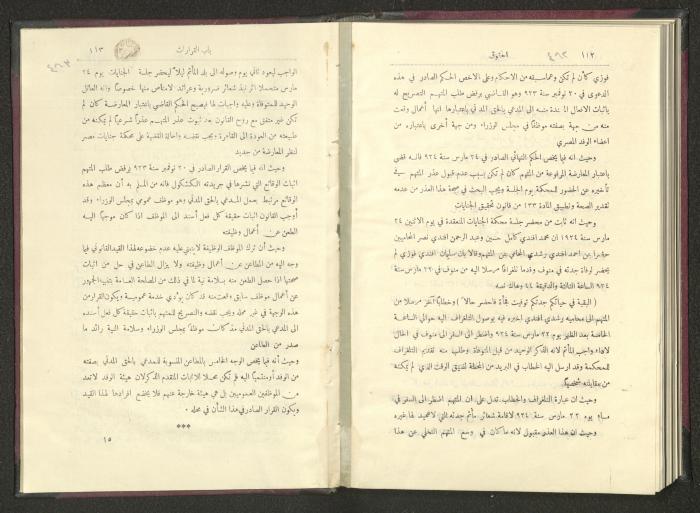 ١١٢
الحقوق
فوزي كأن لم تكن وبما سبقته من الاحكام وعلى الاخص الحكم الصادر في هذه
الدعوى في ٢٠ نوفمبر سنة ٩٢٣ وهو القاضي برفض طلب المتهم التصريح له
باثبات الافعال المسندة منه الى المدعي بالحق المدني باعتبارها انها أعمال وقعت
منه من جهة بصفته موظفاً في مجلس الوزراء ومن جهة أخرى باعتباره من
اعضاء الوفد المصري
وحيث انه فيما يخص الحكم النهائي الصادر في ٢٤ مارس سنة ٩٢٤ فانه قضى
باعتبار المعارضة المرفوعة من المتهم كان لم تكن بسبب عدم قبول عذر المتهم في
تأخيره عن الحضور للمحكمة يوم الجلسة ويجب البحث في صحة هذا العذر من عدمه
لتقدير الصحة وتطبيق المادة ١٣٣ من قانون تحقيق الجنايات
وحيث انه ثابت من محضر جلسة محكمة الجنايات المنعقدة في يوم الاثنين ٢٤
مارس سنة ١٩٢٤ ان محمد افندي كامل حسين وعبد الرحمن افندي نصر المحاميين
حضرا عن احمد افندي رشدي المحامي عن المتهم وقالا بان سليمان افندي فوزي لم
يحضر لوفاة جدته في منوف وقدما تلغرافاً مرسلا اليه من منوف في ٢٣ مارس سنة
٩٢٤ الساعة الثالثة والدقيقة ٤٤ وهاك نصه
( البقية في حياتكم جدتكم توفيت فجأة فاحضر حالا ) وخطاباً آخر مرسلا من
المتهم الى محاميه رشدي افندي اخبره فيه بوصول التلغراف اليه حوالى الساعة
الخامسة بعد الظهر يوم ٢٣ مارس سنة ٩٢٤ واضطر الى السفر الى منوف في الحال
لاداء واجب المأتم لانه الذكر الوحيد من قبل المتوفاة وطلب منه تقديم التلغراف
للمحكمة وقد ارسل اليه الخطاب في البريد من المحطة لضيق الوقت الذي لم يمكنه
من مقابلته شخصياً
وحيث ان عبارة التلغراف والخطاب تدل على ان المتهم اضطر الى السفر في
مساء يوم ٢٣ مارس سنة ٩٢٤ لاقامة شعائر مأتم جدته التي لا عميد لها غيره
وحيث ان هذا العذر مقبول لانه ما كان في وسع المتهم التخلي عن هذا
باب القرارات
١١٣
الواجب ليعود ثاني يوم وصوله الى بلد المأتم ليلاً ليحضر جلسة الجنايات يوم ٢٤
مارس متحملا اثر نبذ شعائر ضرورية وعوائد لا مناص منها خصوصاً وانه العائل
الوحيد للمتوفاة وعليه واجبات لها فيصبح الحكم القاضي باعتبار المعارضة كأن لم
تكن غير متفق مع روح القانون بعد ثبوت عذر المتهم عذراً شرعياً لم يمكنه من
طبيعته من العودة الى القاهرة ويجب نقضه واحالة القضية على محكمة جنايات مصر
لنظر المعارضة من جديد
وحيث انه فيما يخص القرار الصادر في ٢٠ نوفمبر سنة ٩٢٣ برفض طلب المتهم
اثبات الوقائع التي نشرها في جريدته الكشكول فانه من المسلم به أن معظم هذه
الوقائع مرتبط بعمل المدعي بالحق المدني وهو موظف عمومي بمجلس الوزراء وقد
أوجب القانون اثبات حقيقة كل فعل أسند الى الموظف اذا كان موجباً اليه
الطعن عن أعمال وظيفته
وحيث أن ترك الموظف الوظيفة لا ينبني عليه عدم خضوعه لهذا القيد القانوني فيما
وجه اليه من المطاعن عن أعمال وظيفته ولا يزال الطاعن في حل من اثبات
صحتها اذا حصل الطعن منه بسلامة نية لما في ذلك من المصلحة العامة بتنبيه الجمهور
عن أعمال موظف سابق واعتقد منه قد كان يؤدي خدمة عمومية ويكون القرار من
هذه الوجهة في غير محله ويجب نقضه والتصريح للمتهم باثبات حقيقة كل فعل أسنده
الى المدعي بالحق المدني مذ كان موظفاً بمجلس الوزراء وسلامة النية رائد ما
صدر من الطاعن
وحيث أنه فيما يخص الوجه الخامس بالمطاعن المنسوبة للمدعي بالحق المدني بصفته
من الوفد أو منتمياً اليه فلم تكن محلا للاثبات المتقدم الذكر لان هيئة الوفد لا تعد
من الموظفين العموميين بل هي هيئة خارجة عنهم فلا يخضع افرادها لهذا القيد
ويكون القرار الصادر في هذا الشأن في محله .
***
١٥